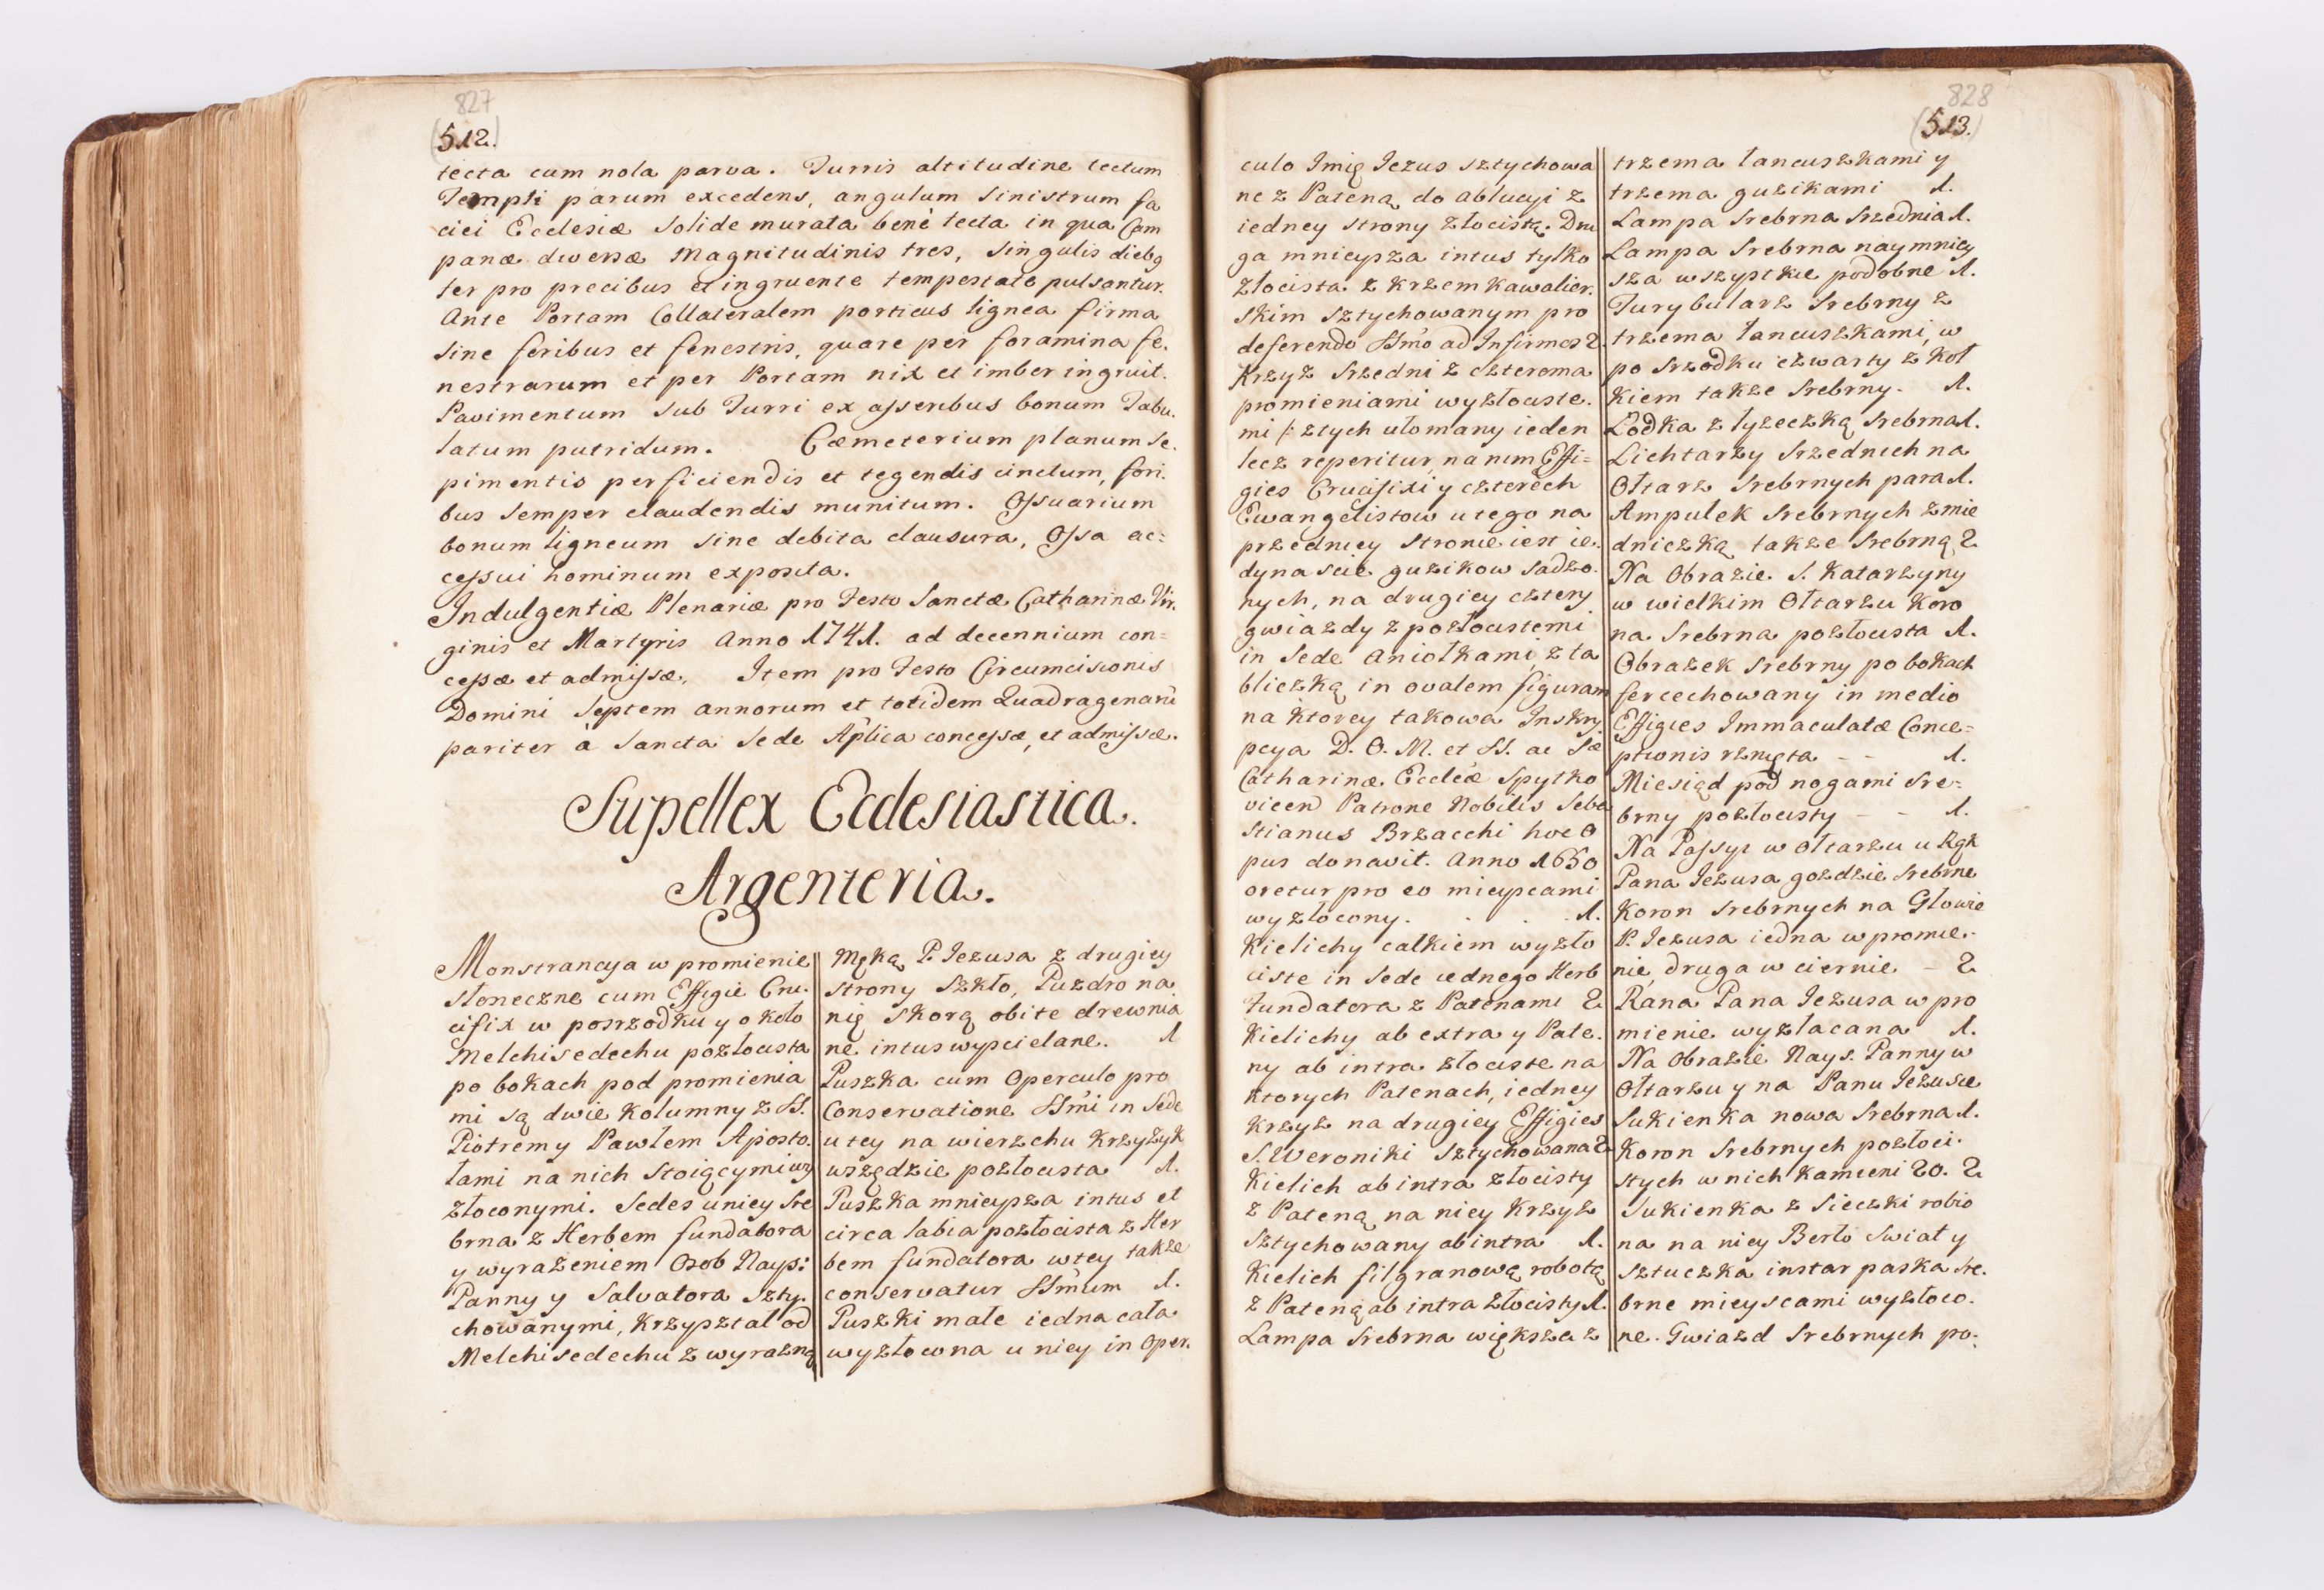 827
(512.)
tecta cum nola parva. Turris altitudine tectum
Templi parum excedens, angulum sinistrum fa
ciei Ecclesiæ solide murata benè tecta in qua Cam
panæ diversæ Magnitudinis tres, singulis diebg
ter pro precibus et ingruente tempestate pulsantur.
Ante Portam Collateralem porticus lignea firma
sine foribus et fenestris, quare per foramina fe.
nestrarum et per Portam nix et imber ingruit.
Pavimentum sub Turri ex asseribus bonum Tabu.
latum putridum. Cæmeterium planum se.
pimentis perficiendis et tegendis cinctum, fori.
bus semper claudendis munitum. Ossuarium
bonum ligneum sine debita clausura, Ossa ac=
cessui hominum exposita.
Indulgentiæ Plenariæ pro Festo Sanctæ Catharinæ Vir.
ginis et Martyris Anno 1741. ad decennium con=
cessæ et admissæ. Item pro Festo Circumcisionis
Domini Septem annorum et totidem Quadragenarū
pariter à Sancta Sede Aplica concessæ, et admissæ.
Supellex Ecclesiastica.
Argenteria.
Monstrancya w promienie
słoneczne cum Effigie Cru.
cifix w posrzodku y około
Melchisedechu pozłocista
po bokach pod promienia
mi są dwie Kolumny z SS.
Piotrem y Pawłem Aposto.
łami na nich stoiącymi wy
złoconymi. Sedes u niey sre
brna z Herbem fundatora
y wyrażeniem Osob Nayś:
Panny y Salvatora szty.
chowanymi, Krzyształ od
Melchisedechu z wyrazną
Męką P. Jezusa z drugiey
strony szkło, Puzdro na
nię skorą obite drewnia
ne intus wyscielane. 1
Puszka cum Operculo pro
Conservatione SSmi in Sede
u tey na wierzchu Krzyżyk
wszędzie pozłocista 1.
Puszka mnieysza intus et
circa labia pozłocista z Her
bem fundatora w tey także
conservatur SSmum 1.
Puszki małe iedna cała
wyzłocona u niey in Oper.
828
(513.)
culo Imię Jezus sztychowa
ne z Pateną do ablucyi z
iedney strony złocistą. Dru
ga mnieysza intus tylko
złocista z krzem kawalier.
skim sztychowanym pro
deferendo SSmo ad Infirmos 2.
Krzyż srzedni z czterema
promieniami wyzłociste.
mi /: z tych ułomany ieden
lecz reperitur, na nim Effi=
gies Crucifixi y czterech
Ewangelistow u tego na
przedniey stronie iest ie.
dynascie guzikow sadzo.
nych, na drugiey cztery
gwiazdy z pozłocistemi
in Sede Aniołkami, z ta
bliczką in ovalem figuram
na ktorey takowa Inskry
pcya D. O. M. et SS. ac Sæ
Catharinæ Eccleæ Spytko
vicen Patronæ Nobilis Seba
stianus Brzacchi hoc O
pus donavit. Anno 1650
oretur pro eo mieyscami
wyzłocony. . . . 1.
Kielichy całkiem wyzło
ciste in Sede iednego Herb
Fundatora z Patenami 2
Kielichy ab extra y Pate.
ny ab intra złociste na
ktorych Patenach, iedney
Krzyż na drugiey Effigies
S. Weroniki sztychowana 2
Kielich ab intra złocisty
z Pateną na niey Krzyż
sztychowany ab intra 1.
Kielich filgranową robotą
z Pateną ab intra złocisty 1.
Lampa srebrna większa z
trzema łancuszkami y
trzema guzikami 1.
Lampa srebrna srzednia 1.
Lampa srebrna naymniey
sza wszystkie podobne 1.
Turybularz srebrny z
trzema łancuszkami, w
po srzodku czwarty z koł
kiem także srebrny. 1.
Łodka z łyżeczką srebrna 1.
Lichtarzy srzednich na
Ołtarz srebrnych para 1.
Ampułek srebrnych z mie
dniczką także srebrną 2
Na Obrazie S. Katarzyny
w wielkim Ołtarzu Koro
na srebrna pozłocista 1.
Obrazek srebrny po bokach
fercechowany in medio
Effigies Immaculatæ Conce=
ptionis rznięta - - 1.
Miesiąc pod nogami sre=
brny pozłocisty - - 1.
Na Passyi w Ołtarzu u Rąk
Pana Jezusa gozdzie srebrne
Koron srebrnych na Głowie
P. Jezusa iedna w promie.
nie, druga w ciernie - 2
Rana Pana Jezusa w pro
mienie wyzłacana 1.
Na Obrazie Nays. Panny w
Ołtarzu y na Panu Jezusie
Sukienka nowa srebrna 1.
Koron srebrnych pozłoci.
stych w nich kamieni 20. 2
Sukienka z sieczki robio
na na niey Berło Swiat y
sztuczka instar paska sre.
brne mieyscami wyzłoco.
ne. Gwiazd srebrnych po.